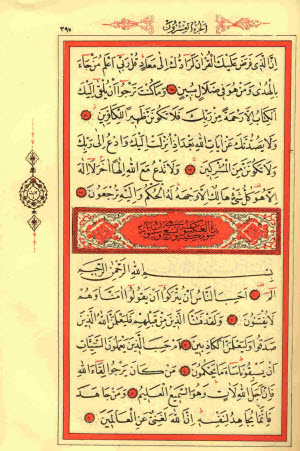 الجزء العشرون
٣٩٧
اِنَّ الَّذٖى فَرَضَ عَلَيْكَ الْقُرْاٰنَ لَرَٓادُّكَ اِلٰى مَعَادٍ قُلْ رَبّٖٓى اَعْلَمُ مَنْ جَٓاءَ
بِالْهُدٰى وَمَنْ هُوَ فٖى ضَلَالٍ مُبٖينٍ ﴿٨٥﴾ وَمَا كُنْتَ تَرْجُٓوا اَنْ يُلْقٰٓى اِلَيْكَ
الْكِتَابُ اِلَّا رَحْمَةً مِنْ رَبِّكَ فَلَا تَكُونَنَّ ظَهٖيرًا لِلْكَافِرٖينَ ﴿٨٦﴾
وَلَا يَصُدُّنَّكَ عَنْ اٰيَاتِ اللّٰهِ بَعْدَ اِذْ اُنْزِلَتْ اِلَيْكَ وَادْعُ اِلٰى رَبِّكَ
وَلَا تَكُونَنَّ مِنَ الْمُشْرِكٖينَ ﴿٨٧﴾ وَلَا تَدْعُ مَعَ اللّٰهِ اِلٰهًا اٰخَرَ لَٓا اِلٰهَ
اِلَّا هُوَ كُلُّ شَىْءٍ هَالِكٌ اِلَّا وَجْهَهُ لَهُ الْحُكْمُ وَاِلَيْهِ تُرْجَعُونَ ﴿٨٨﴾
بِسْمِ اللّٰهِ الرَّحْمٰنِ الرَّحٖيمِ
الٓمٓ ﴿١﴾ اَحَسِبَ النَّاسُ اَنْ يُتْرَكُٓوا اَنْ يَقُولُٓوا اٰمَنَّا وَهُمْ
لَا يُفْتَنُونَ ﴿٢﴾ وَلَقَدْ فَتَنَّا الَّذٖينَ مِنْ قَبْلِهِمْ فَلَيَعْلَمَنَّ اللّٰهُ الَّذٖينَ
صَدَقُوا وَلَيَعْلَمَنَّ الْكَاذِبٖينَ ﴿٣﴾ اَمْ حَسِبَ الَّذٖينَ يَعْمَلُونَ السَّيِّـَٔاتِ
اَنْ يَسْبِقُونَا سَٓاءَ مَا يَحْكُمُونَ ﴿٤﴾ مَنْ كَانَ يَرْجُوا لِقَٓاءَ اللّٰهِ
فَاِنَّ اَجَلَ اللّٰهِ لَاٰتٍ وَهُوَ السَّمٖيعُ الْعَلٖيمُ ﴿٥﴾ وَمَنْ جَاهَدَ
فَاِنَّمَا يُجَاهِدُ لِنَفْسِهٖ اِنَّ اللّٰهَ لَغَنِىٌّ عَنِ الْعَالَمٖينَ ﴿٦﴾